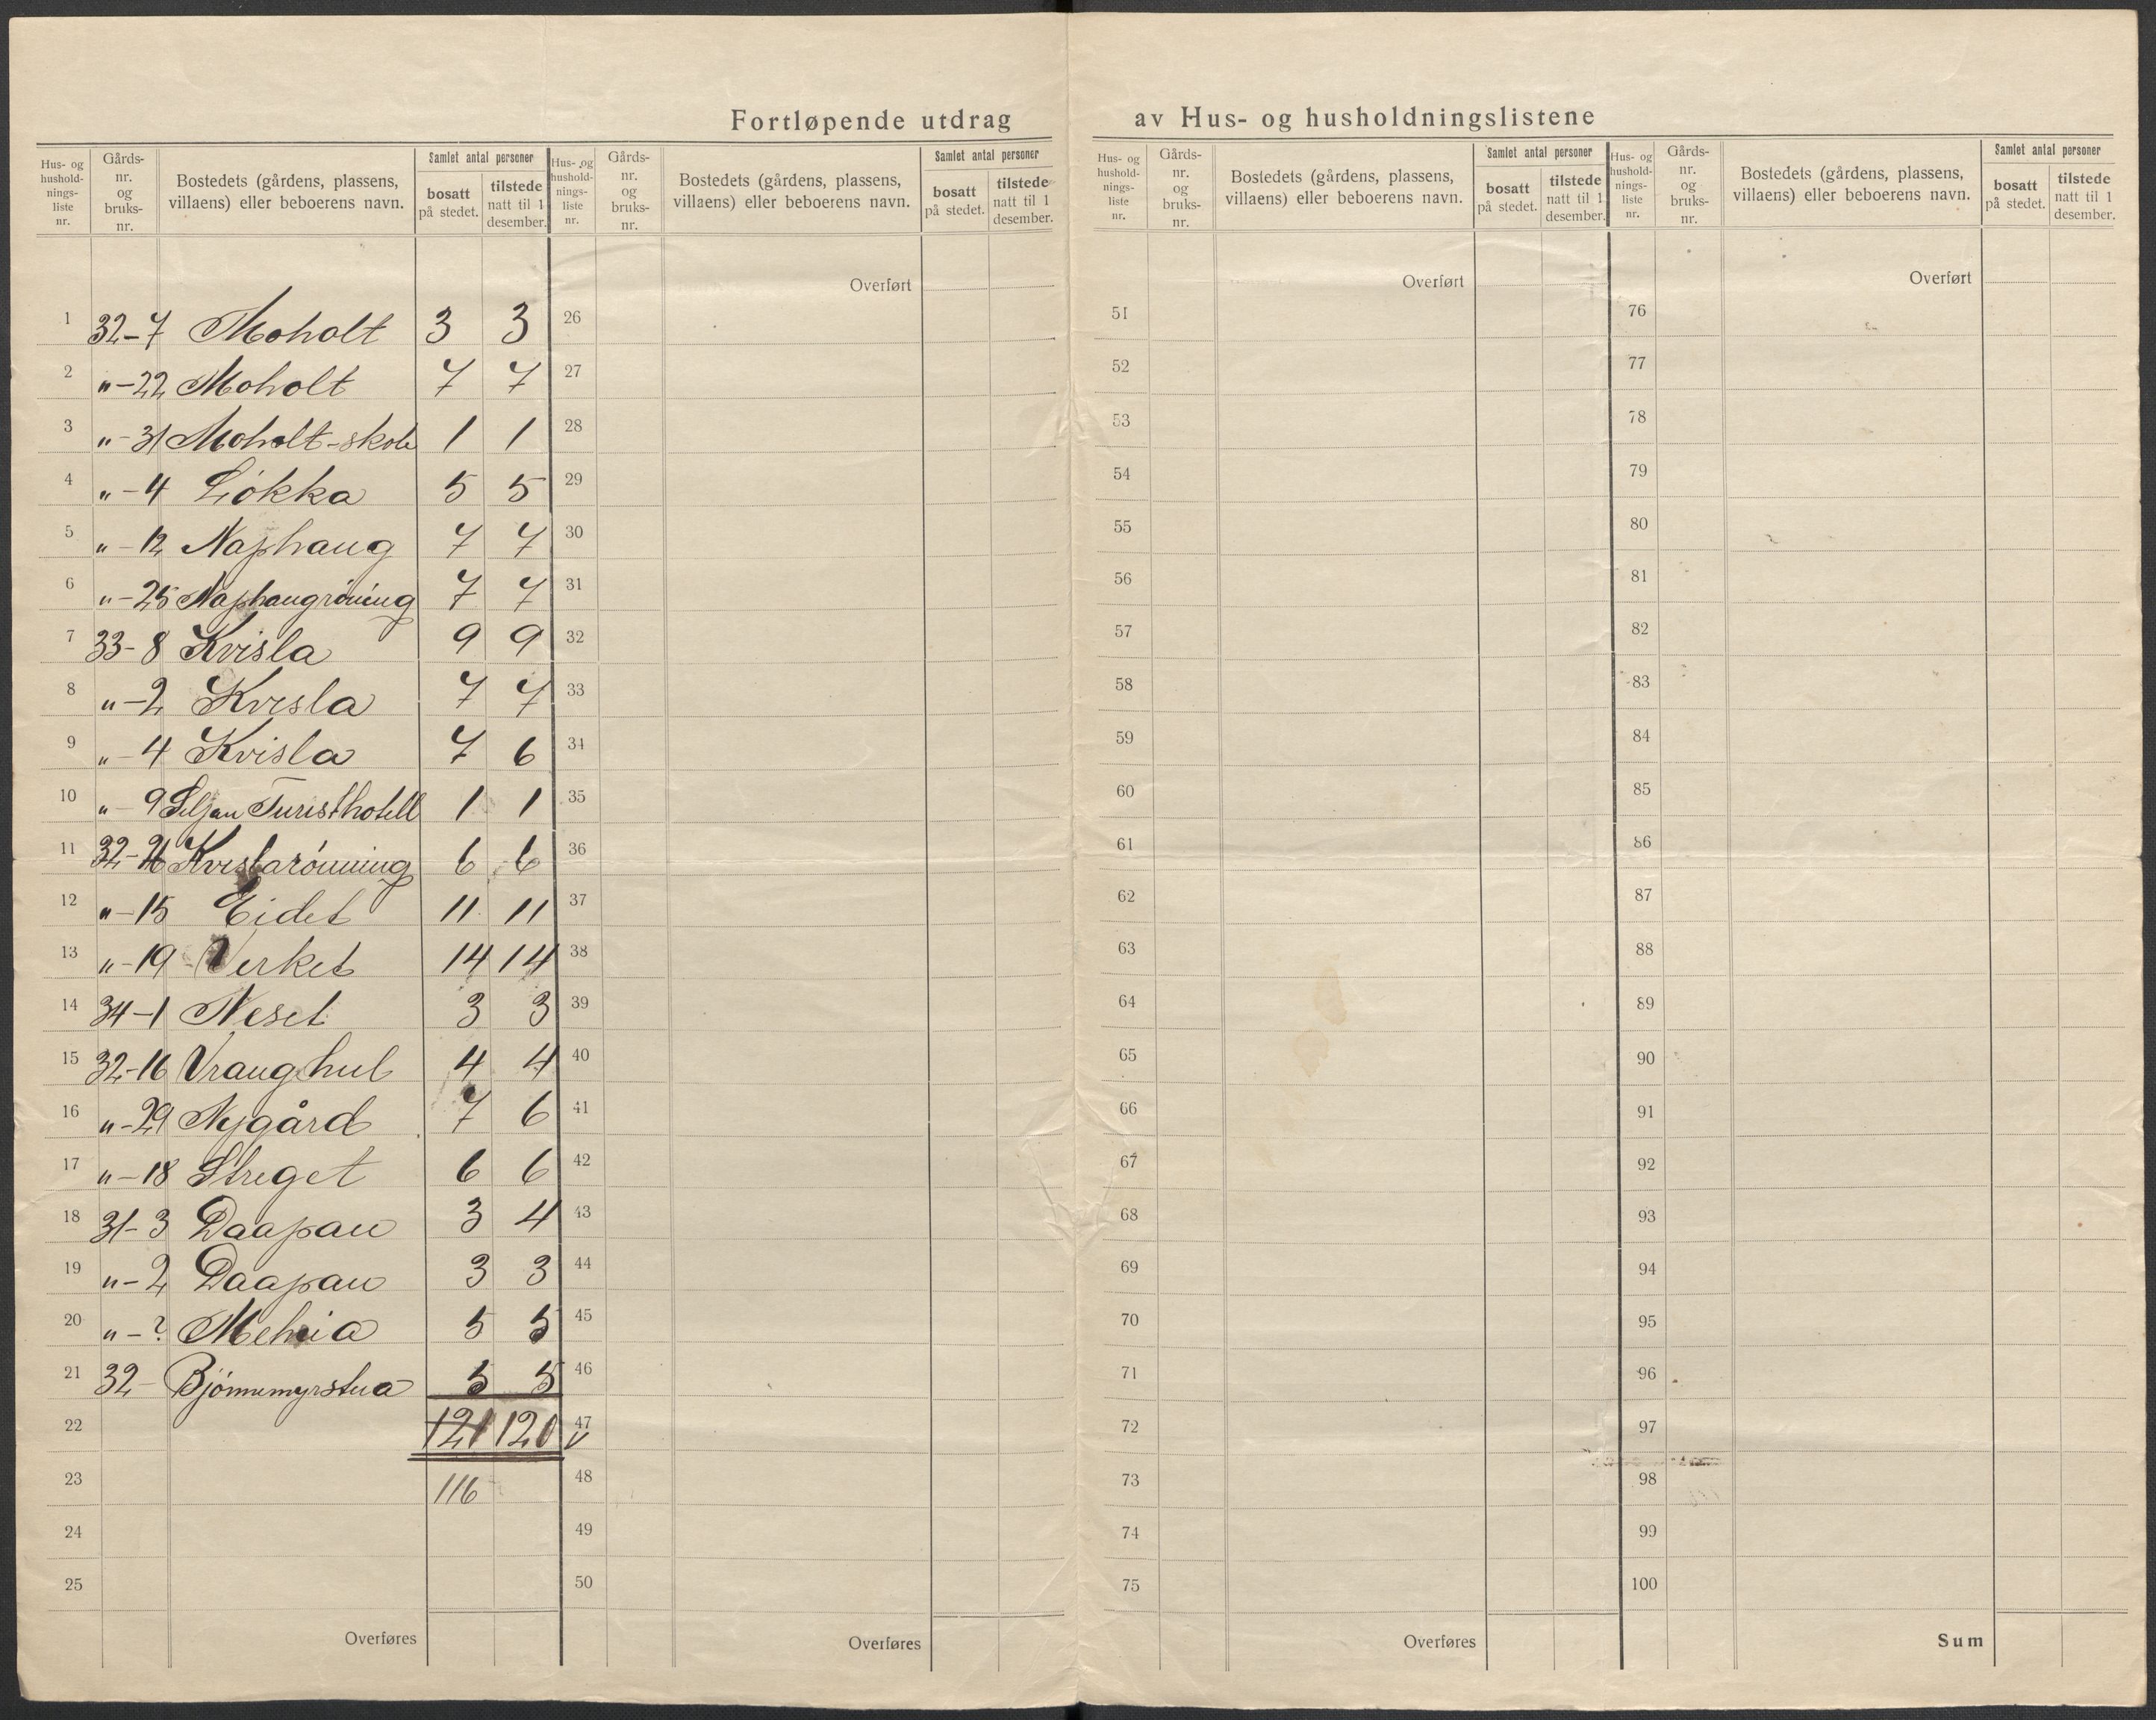 Fortløpende utdrag av Hus- og husholdningslistene
Hus- og hushold-nings-liste nr. Gårds-nr. og bruks-nr. Bostedets (gårdens, plassens, villaens) eller beboerens navn. Samlet antal personer bosatt på stedet. tilstede natt til 1 desember.
Hus- og hushold-nings-liste nr. Gårds-nr. og bruks-nr. Bostedets (gårdens, plassens, villaens) eller beboerens navn. Samlet antal personer bosatt på stedet. tilstede natt til 1 desember.
Hus- og hushold-nings-liste nr. Gårds-nr. og bruks-nr. Bostedets (gårdens, plassens, villaens) eller beboerens navn. Samlet antal personer bosatt på stedet. tilstede natt til 1 desember.
Hus- og hushold-nings-liste nr. Gårds-nr. og bruks-nr. Bostedets (gårdens, plassens, villaens) eller beboerens navn. Samlet antal personer bosatt på stedet. tilstede natt til 1 desember.
Overført Overført Overført
1 32-7 Moholt 3 3 26 51 76
2 "-22 Moholt 7 7 27 52 77
3 "-31 Moholt-skole 1 1 28 53 78
4 "-4 Lökka 5 5 29 54 79
5 "-12 Naphaug 7 7 30 55 80
6 "-25 Naphaugröning 7 7 31 56 81
7 33-8 Kvisla 9 9 32 57 82
8 "-2 Kvisla 7 7 33 58 83
9 "-4 Kvisla 7 6 34 59 84
10 "-9 Seljan Turisthotell 1 1 35 60 85
11 32- Kvislarönning 6 6 36 61 86
12 "-15 Eidet 11 11 37 62 87
13 "-19 Verket 14 14 38 63 88
14 34-1 Neset 3 3 39 64 89
15 32-16 Vranghul 4 4 40 65 90
16 "-29 Nygård 7 6 41 66 91
17 "-18 Streget 6 6 42 67 92
18 31-3 Daapan 3 4 43 68 93
19 "-2 Daapan 3 3 44 69 94
20 "-? 5 5 45 70 95
21 32- Björnemyrstua 5 5 46 71 96
22 121 120 47 72 97
23 116 48 73 98
24 49 74 99
25 50 75 100
Overføres Overføres Overføres Sum